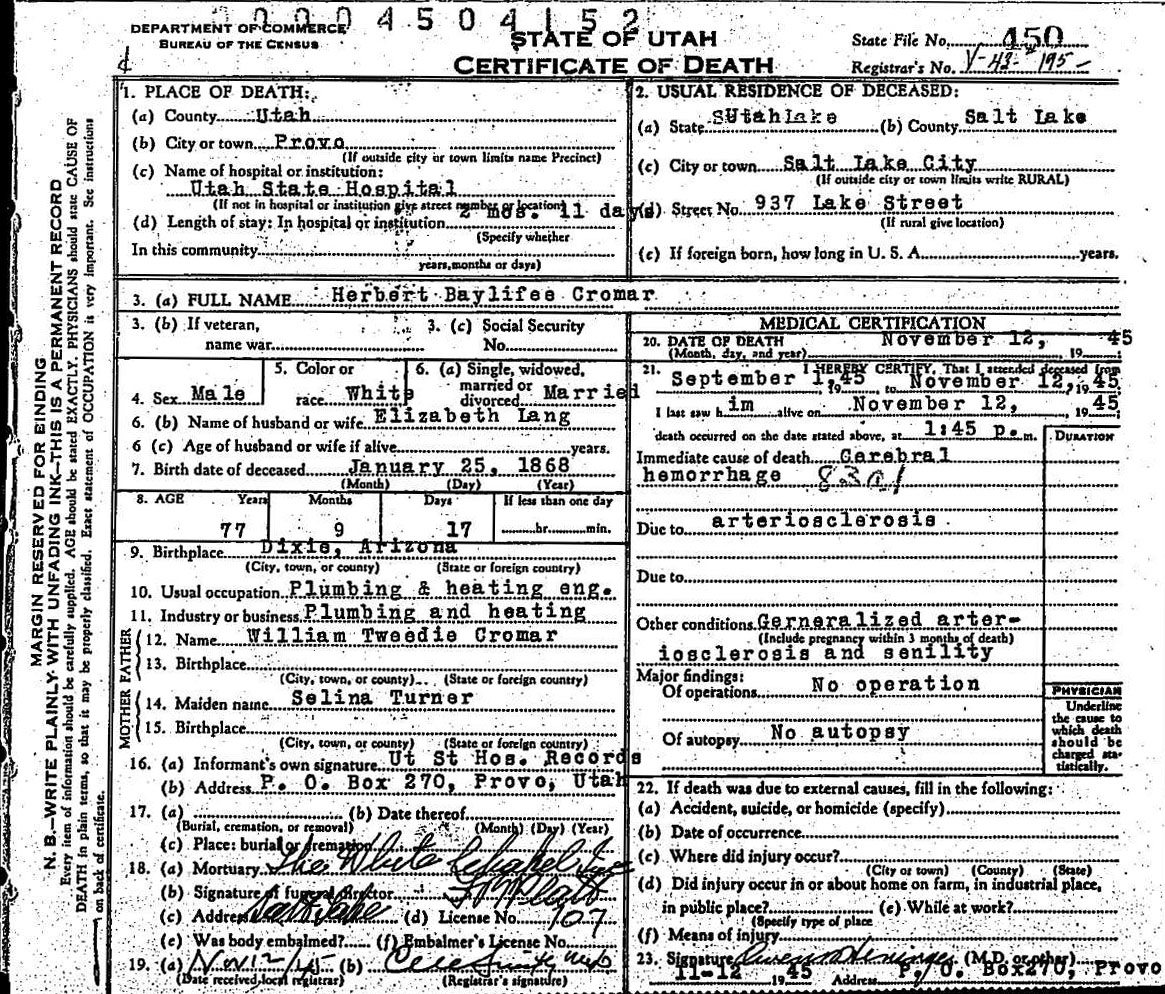 0004504152
DEPARTMENT OF COMMERCE
BUREAU OF THE CENSUS
STATE OF UTAH
CERTIFICATE OF DEATH
State File No. 450
Registrar's No. V-43-195-
MARGIN RESERVED FOR BINDING
N. B.—WRITE PLAINLY WITH UNFADING INK—THIS IS A PERMANENT RECORD
Every item of information should be carefully supplied. AGE should be stated EXACTLY. PHYSICIANS should state CAUSE OF
DEATH in plain terms, so that it may be properly classified. Exact statement of OCCUPATION is very important. See instructions
on back of certificate.
1. PLACE OF DEATH:
(a) County Utah
(b) City or town Provo
(If outside city or town limits name Precinct)
(c) Name of hospital or institution:
Utah State Hospital
(If not in hospital or institution give street number or location)
(d) Length of stay: In hospital or institution 2 mos. 11 days
(Specify whether
In this community
years, months or days)
2. USUAL RESIDENCE OF DECEASED:
(a) State Utah (b) County Salt Lake
(c) City or town Salt Lake City
(If outside city or town limits write RURAL)
(d) Street No. 937 Lake Street
(If rural give location)
(e) If foreign born, how long in U. S. A. years.
3. (a) FULL NAME Herbert Baylifee Cromar
3. (b) If veteran,
name war
3. (c) Social Security
No.
4. Sex Male
5. Color or
race White
6. (a) Single, widowed,
married or
divorced Married
6. (b) Name of husband or wife Elizabeth Lang
6 (c) Age of husband or wife if alive years.
7. Birth date of deceased January 25, 1868
(Month) (Day) (Year)
8. AGE Years Months Days If less than one day
77 9 17 hr. min.
9. Birthplace Dixie, Arizona
(City, town, or county) (State or foreign country)
10. Usual occupation Plumbing & heating eng.
11. Industry or business Plumbing and heating
FATHER
12. Name William Tweedie Cromar
13. Birthplace
(City, town, or county) (State or foreign country)
MOTHER
14. Maiden name Selina Turner
15. Birthplace
(City, town, or county) (State or foreign country)
16. (a) Informant's own signature Ut St Hos. Records
(b) Address P. O. Box 270, Provo, Utah
17. (a) (b) Date thereof
(Burial, cremation, or removal) (Month) (Day) (Year)
(c) Place: burial or cremation
18. (a) Mortuary The White Chapel
(b) Signature of funeral director
(c) Address Salt Lake (d) License No. 107
(e) Was body embalmed? (f) Embalmer's License No.
19. (a) Nov 12/45 (b)
(Date received local registrar) (Registrar's signature)
MEDICAL CERTIFICATION
20. DATE OF DEATH November 12, 45
(Month, day, and year) 19
21. I HEREBY CERTIFY, That I attended deceased from
September 1, 1945 to November 12, 1945
I last saw h im alive on November 12, 1945
death occurred on the date stated above, at 1:45 p. m.
DURATION
Immediate cause of death Cerebral
hemorrhage
Due to arteriosclerosis
Due to
Other conditions Gerneralized arter-
(Include pregnancy within 3 months of death)
iosclerosis and senility
Major findings:
Of operations No operation
Of autopsy No autopsy
PHYSICIAN
Underline
the cause to
which death
should be
charged sta-
tistically.
22. If death was due to external causes, fill in the following:
(a) Accident, suicide, or homicide (specify)
(b) Date of occurrence
(c) Where did injury occur?
(City or town) (County) (State)
(d) Did injury occur in or about home on farm, in industrial place,
in public place? (e) While at work?
(Specify type of place
(f) Means of injury
23. Signature (M.D. or other)
11-12 1945 Address P. O. Box270, Provo